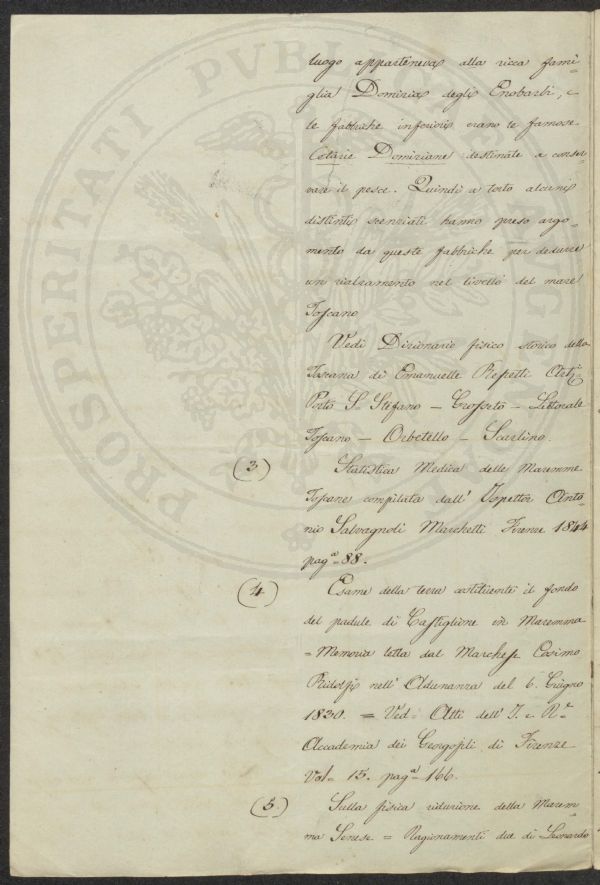 luogo apparteneva alla ricca fami-
glia Domizia degli Enobarbi, e
le fabbriche inferiori erano le famose
Cetarie Domiziane destinate a conser-
vare il pesce. Quindi a torto alcuni
distinti scenziati hanno preso argo-
mento da queste fabbriche per dedurre
un rialzamento nel livello del mare
Toscano
Vedi Dizionario fisico storico della
Toscana di Emanuelle Repetti Arti.
Porto S. Stefano — Grosseto — Littorale
Toscano — Orbetello — Scarlino.
(3) Statistica Medica delle Maremme
Toscane compilata dall' Ispettor Anto-
nio Salvagnoli Marchetti Firenze 1844
pag.ª 88.
(4) Esame della terra costituenti il fondo
del padule di Castiglione in Maremma
= Memoria letta dal Marchese Cosimo
Ridolfi nell' Adunanza del 6. Giugno
1830. = Ved: Atti dell' I. e R.e
Accademia dei Georgofili di Firenze
Vol. 15. pag.ª 166.
(5.) Sulla fisica riduzione della Marem-
ma Senese = Ragionamenti due di Leonardo
PROSPERITATI PVBL